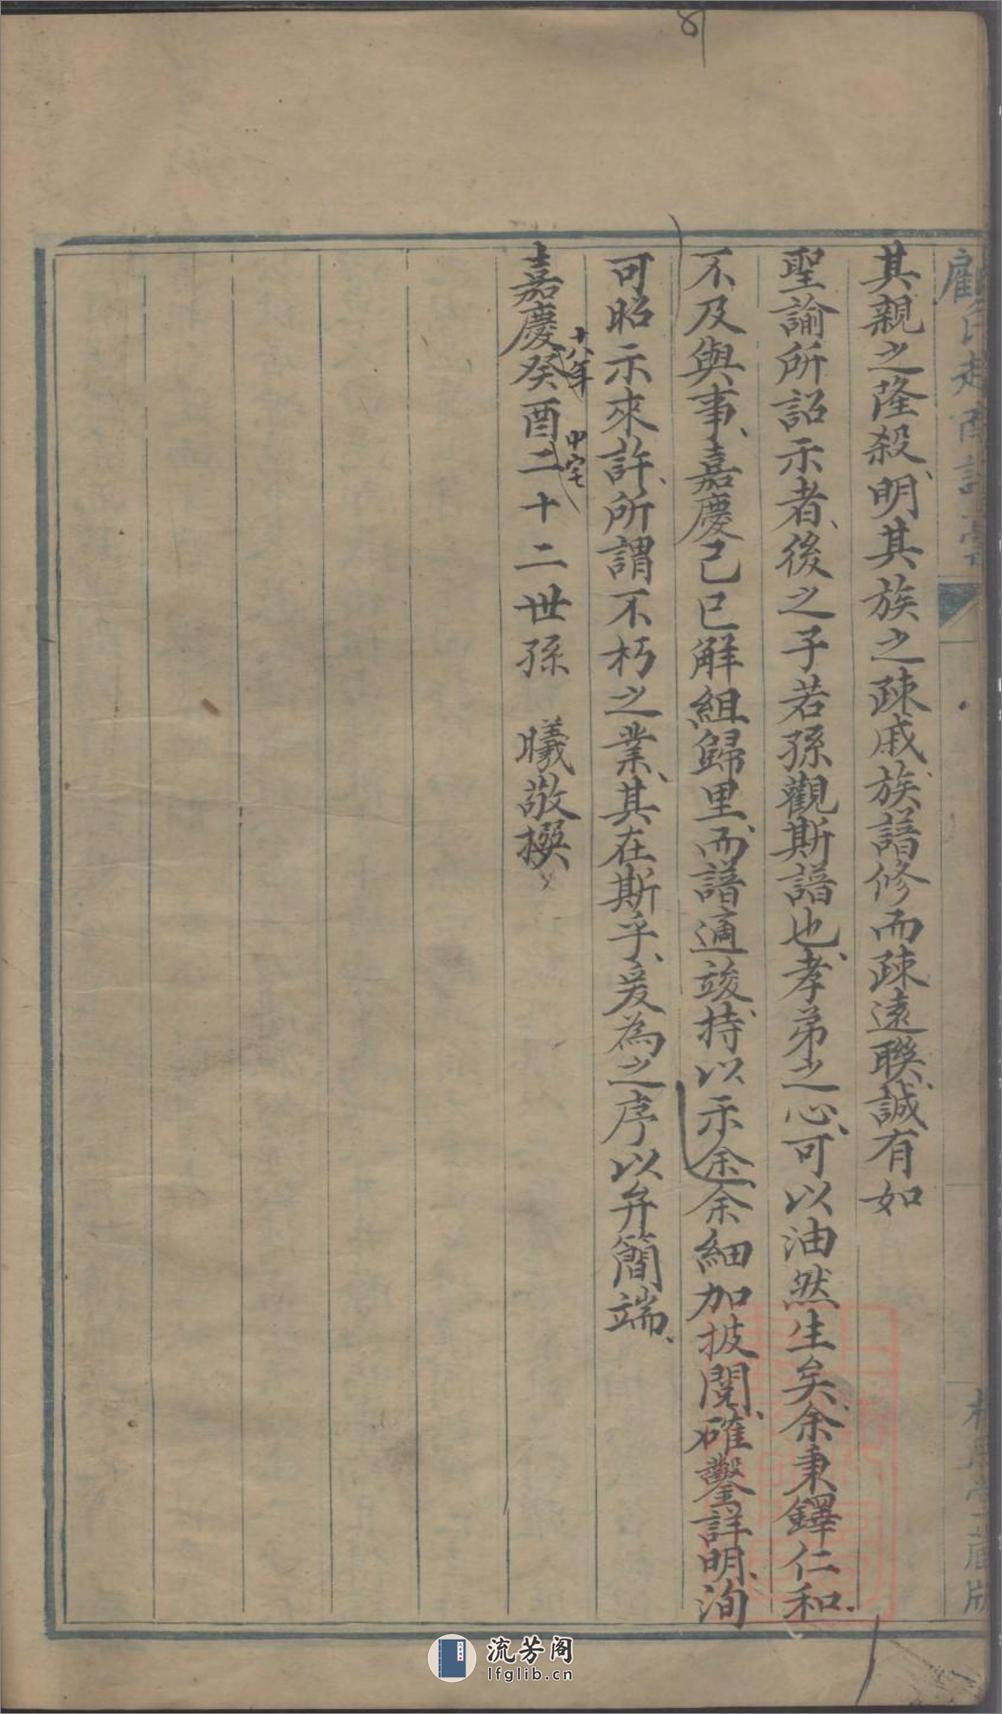 其親之隆殺、明其族之疎戚、族譜修而疎遠聯、誠有如
聖諭所詔示者、後之子若孫觀斯譜也、孝弟之心、可以油然生矣、余秉鐸仁和、
不及與事、嘉慶己巳解組歸里、而譜適竣、持以示余、余細加披閱、確鑿詳明、洵
可昭示來許、所謂不朽之業、其在斯乎、爰為之序、以弁簡端、
嘉慶癸酉二十二世孫 曦敬撰
十八年
中空七
流芳阁
lfglib.cn